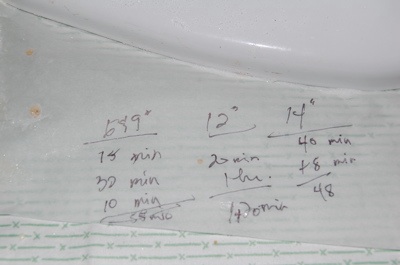 6&9"
15 min
30 min
10 min
55 min
12"
20 min
1 hr.
14"
40 min
+8 min
48